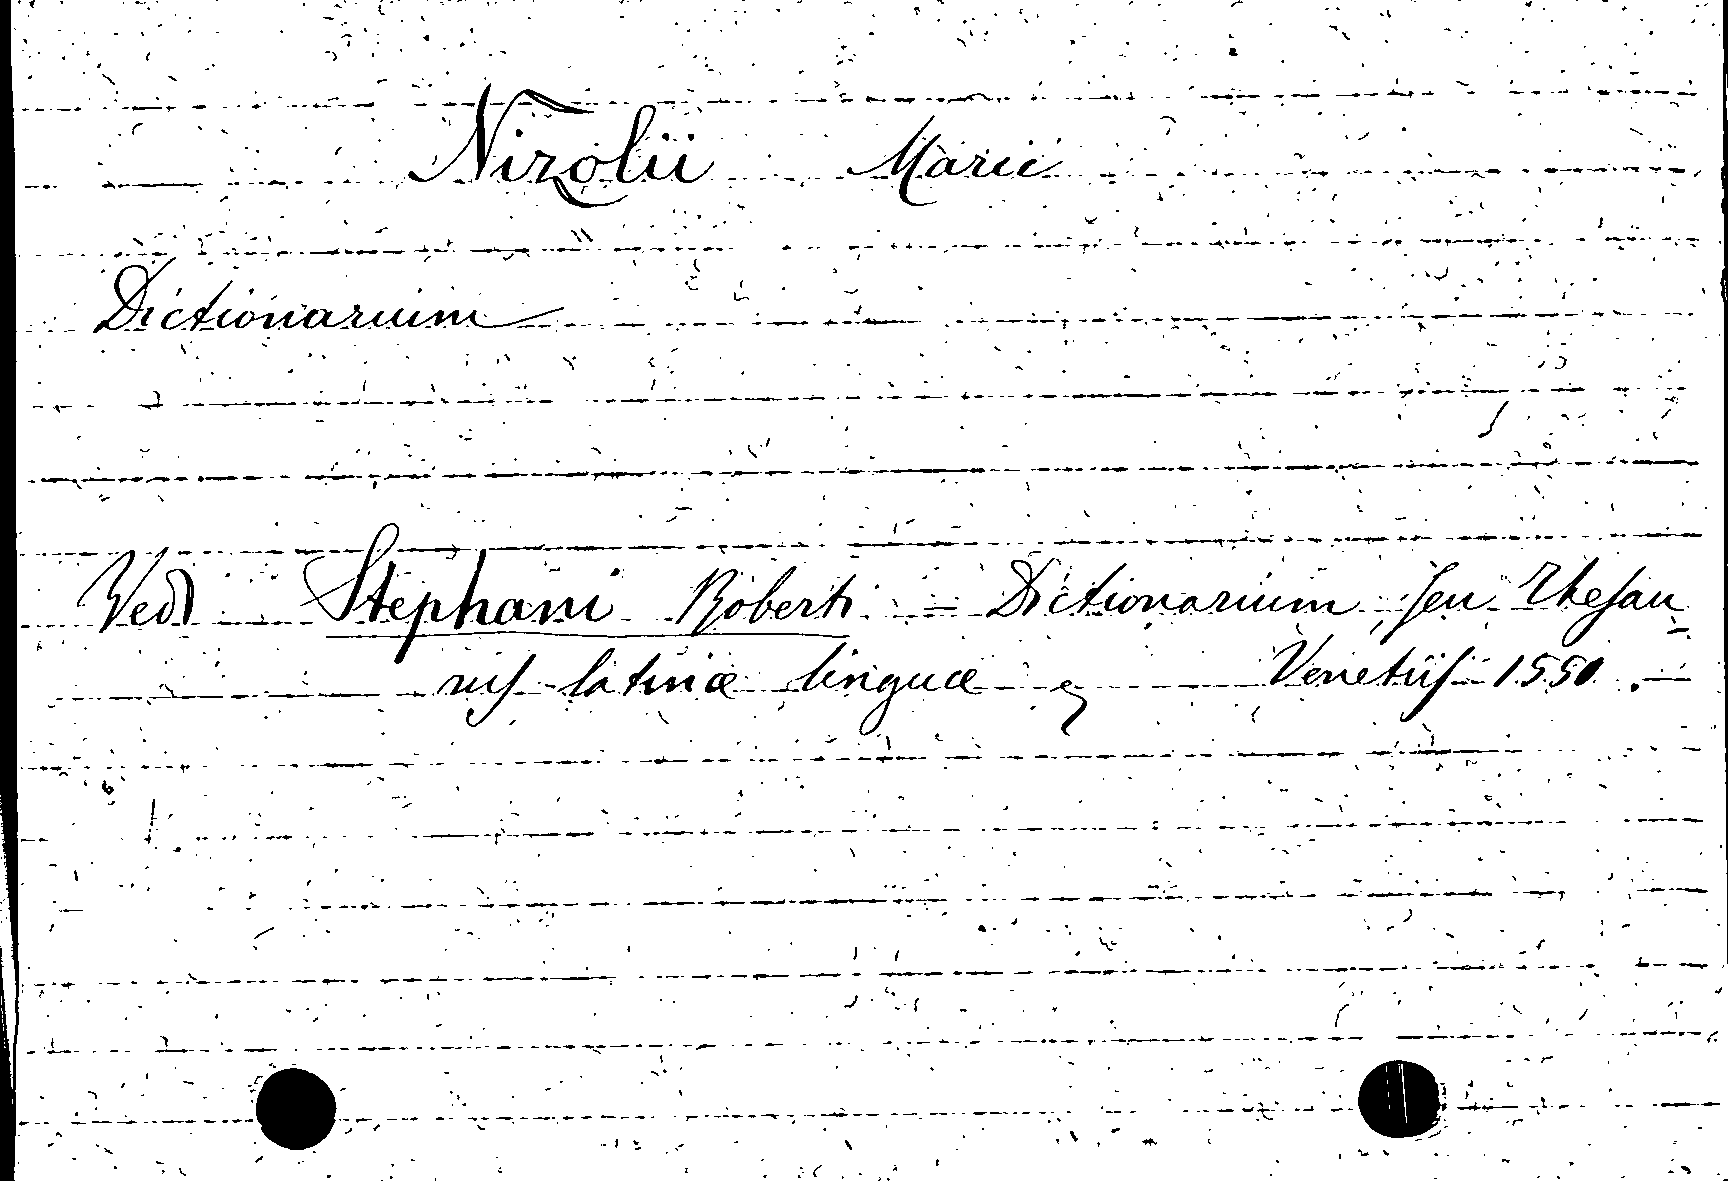 Nizolii Marii
Dictionarium
Vedi Stephani Roberti = Dictionarium, seu Thesau=
rus latinæ linguæ Venetiis 1550.